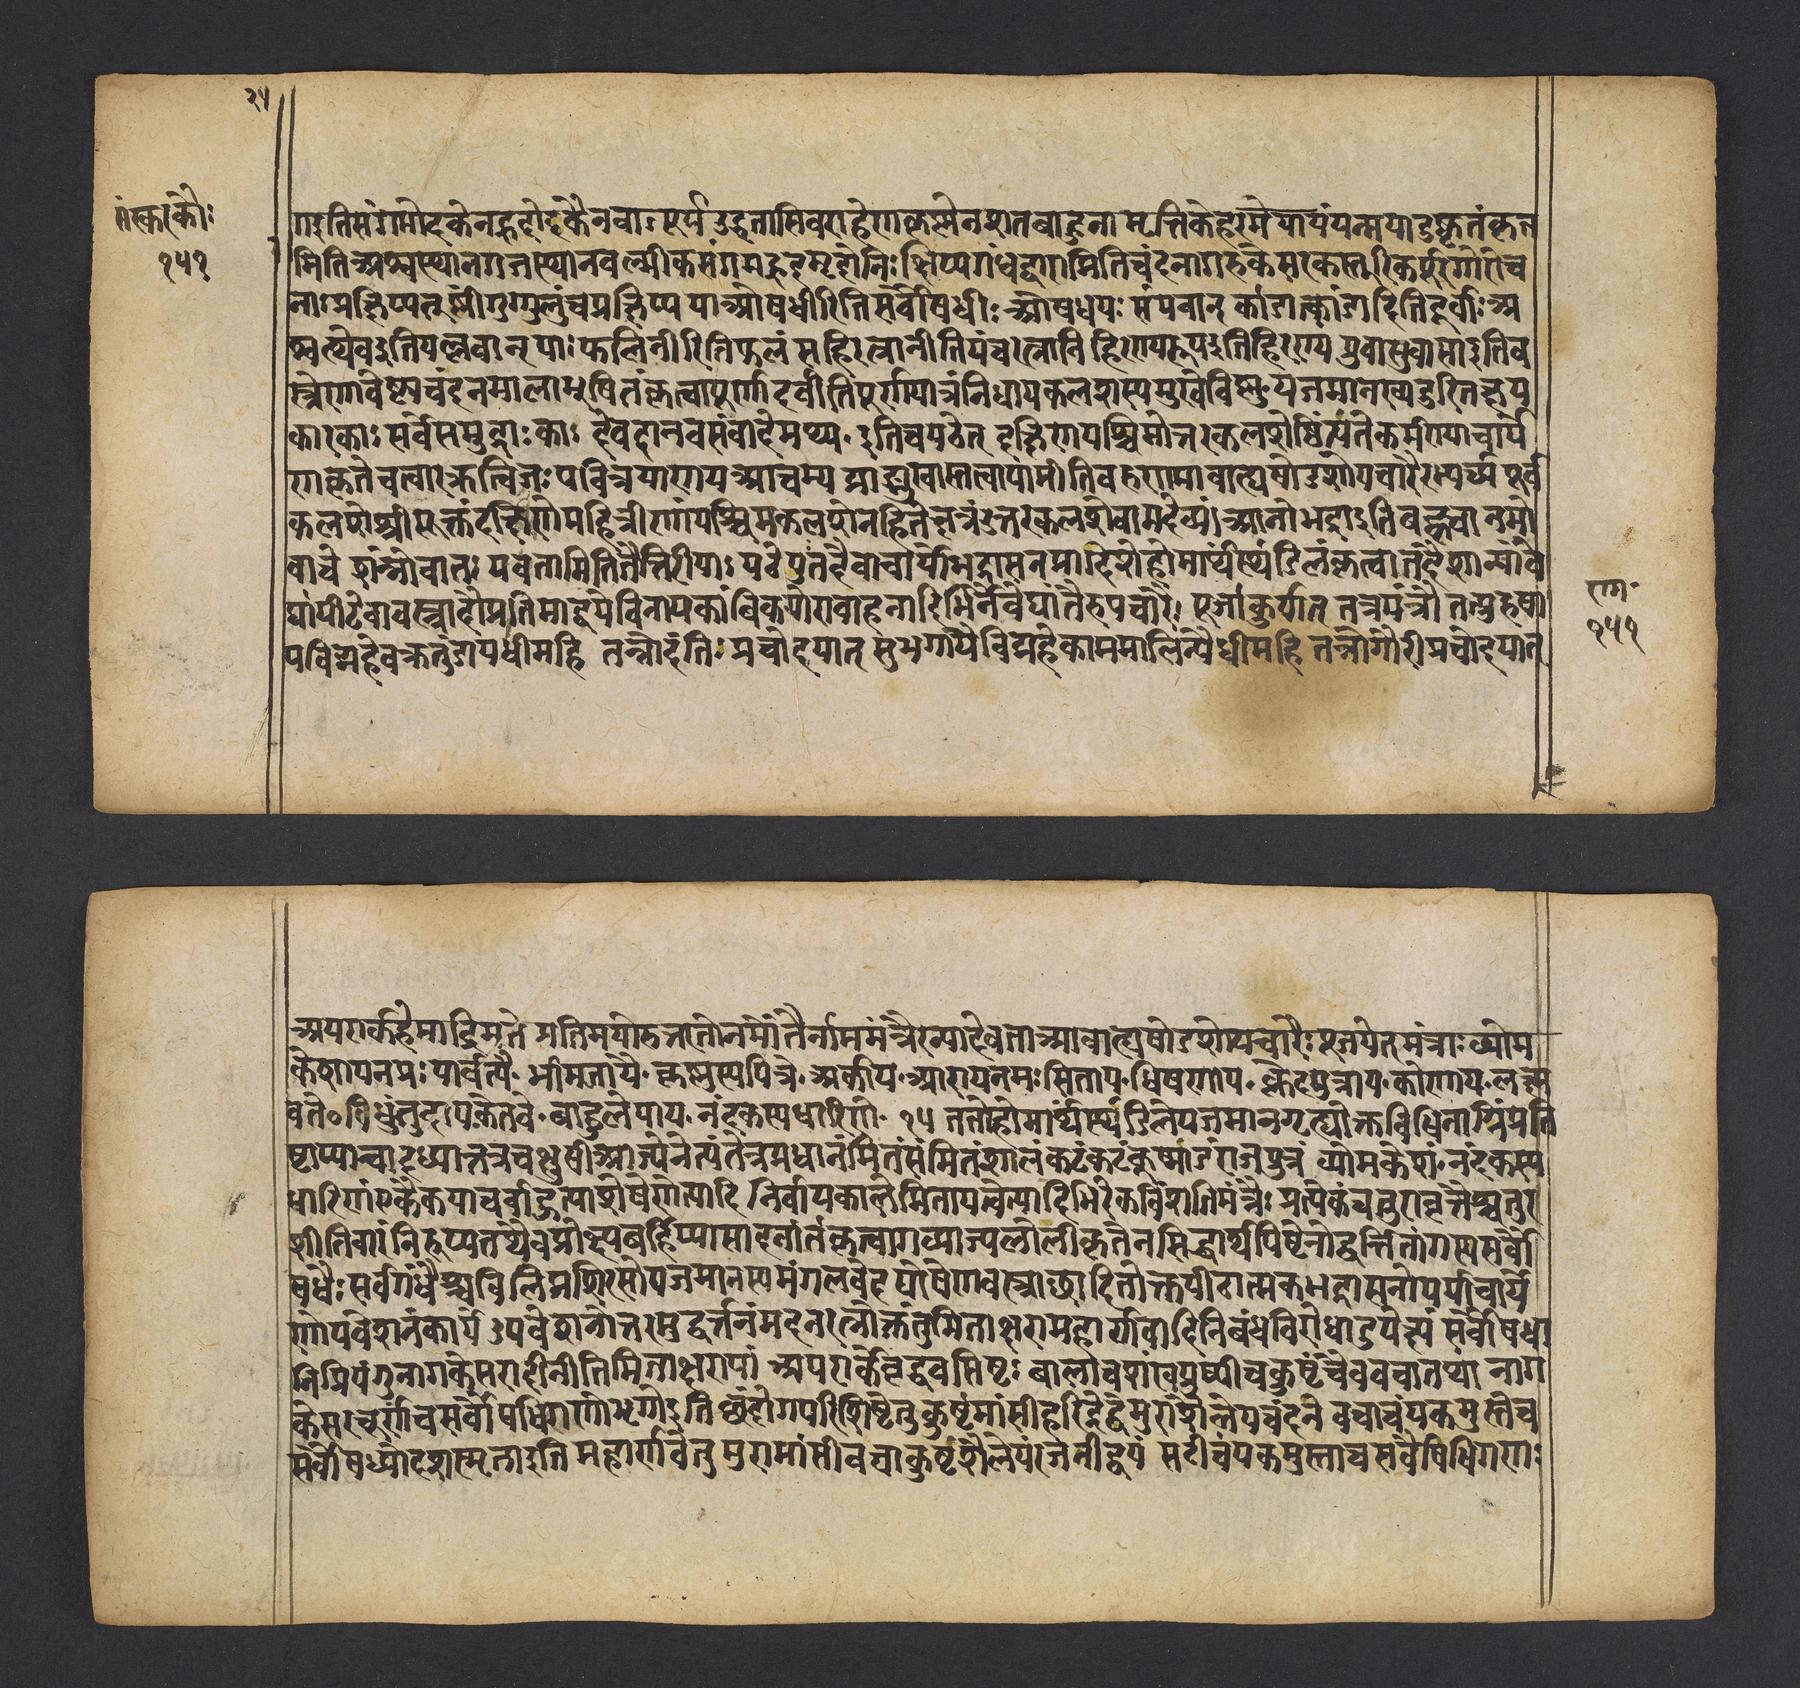 २५
संस्का॰कौ॰
१५१
ण॰इतिसंगमोदकेनह्रदोदकेनवा॰पूर्य उद्धृतासिवराहेणकृष्णेनशतबाहुना मृत्तिकेहरमेपापंयन्मयादुष्कृतंकृत
मितिअश्वस्थानगजस्थानवल्मीकसंगमह्रदमृदोनिःक्षिप्यगंधद्वारामितिचंदनागरुकेसरकस्तूरीकर्पूरगोरोच
नाःप्रक्षिप्यतूष्णींगुग्गुलुंचप्रक्षिप्य याओषधीरितिसर्वौषधीः ओषधयः संयवान् कांडात्कांडादितिदूर्वाः अ
श्वत्थेवइतिपल्लवान् याःफलिनीरितिफलं सहिरत्नानीतिपंचरत्नानि हिरण्यरूपइतिहिरण्य युवासुवासाइतिव
स्त्रेणावेष्ट्यचंदनमालाभूषितंकृत्वापूर्णादर्वीतिपूर्णपात्रंनिधायकलशस्यमुखेविष्णु॰यजमानस्यदुरितक्षय
कारकाः सर्वेसमुद्राः काः देवदानवसंवादेमथ्य॰इतिचपठेत् दक्षिणपश्चिमोत्तरकलशेष्वित्यंतेकर्मण्याचार्य
णकृतेचत्वारऋत्विजः पवित्रपाणयआचम्य प्राङ्मुखास्तत्वायामीतिवरुणमावाह्यषोडशोपचारैरभ्यर्च्य पूर्व
कलशेश्रीसूक्तंदक्षिणेमहित्रीणांपश्चिमकलशेनहितेक्षत्रंउत्तरकलशेवामदेव्यं आनोभद्राइतिबह्वृचा नमो
वाचे शंनोवातः पवतामितितैत्तिरीयाः पठेयुः ततैवाचार्योभद्रासनप्राग्देशेहोमार्थस्थंडिलंकृत्वातदैशान्यांव
द्यांपीठेवावस्त्रादौप्रतिमाद्वयेविनायकांबिकयोरावाहनादिभिर्नैवेद्यांतैरुपचारैः पूजांकुर्यात् तत्रमंत्रौ तत्पुरुषा
यविद्महेवक्रतुंडायधीमहि तन्नोदंतिः प्रचोदयात् सुभगायैविद्महेकाममालिन्यैधीमहि तन्नोगौरीप्रचोदयात्
राम॰
१५१
अपरार्कहेमाद्रिमते प्रतिमयोरुत्तरतोनमोंतैर्नाममंत्रैरन्यादेवताआवाह्यषोडशोपचारैः पूजयेत् मंत्राः व्योम
केशायनमः पार्वत्यै॰ भीमजायै॰ कृष्णस्यपित्रे॰ अर्काय॰ आरायनमः सिताय॰ धिषणाय॰ क्लेदपुत्राय॰ कोणाय॰ लक्ष्म
वते॰ विधुंतुदायकेतवे॰ बाहुलेयाय॰ नंदकस्यधारिणे॰ १५ ततोहोमार्थस्थंडिलेयजमानगृह्योक्तविधिनाग्निंप्रति
ष्ठाप्यान्वादध्यात्तत्रचक्षुषीआज्येनेत्यंतेत्रप्रधानंमितंसंमितंशालंकटंकटंकूष्मांडंराजपुत्रं व्योमकेशं॰ नंदकस्य
धारिणंसकृत्कयाचर्वाहुत्याशेषेणेत्यादि निर्वापकालेमितायत्वेत्यादिभिरेकविंशतिमंत्रैः प्रत्येकंचतुरावृत्तैश्चतुर
शीतिवारंनिरूप्यतथैवप्रोक्ष्यबर्हिष्यासादनांतंकृत्वागव्याज्यलोलीकृतेनसिद्धार्थपिष्टेनोद्वर्त्तितांगस्यसर्वौ
षधैः सर्वगंधैश्चविलिप्तशिरसोयजमानस्यमंगलवेदघोषेणवस्त्राछादितोक्तपीठात्मकभद्रासनोपर्याचार्ये
णोपवेशनंकार्यं उपवेशनोत्तरमुद्वर्त्तनंमदनरत्नोक्तंतुमिताक्षरामहार्णवादिनिबंधविरोधादुपेक्ष्यं सर्वौषधा
निप्रियंगुनागकेसरादीनीतिमिताक्षरायां अपरार्केवृद्धवसिष्ठः बालावशंखपुष्पीचकुष्ठंचैववचातथा नाग
केसरचूर्णंचसर्वौषधिगणोभृगोःइति छंदोगपरिशिष्टेतु कुष्ठंमांसीहरिद्रेद्वेमुराशैलेयचंदने वचाचंपकमुस्तेच
सर्वौषध्योदशस्मृताइति महार्णवेतु मुरामांसीवचाकुष्ठंशैलेयंरजनीद्वयं सटीचंपकमुस्ताचसर्वौषधिगणः